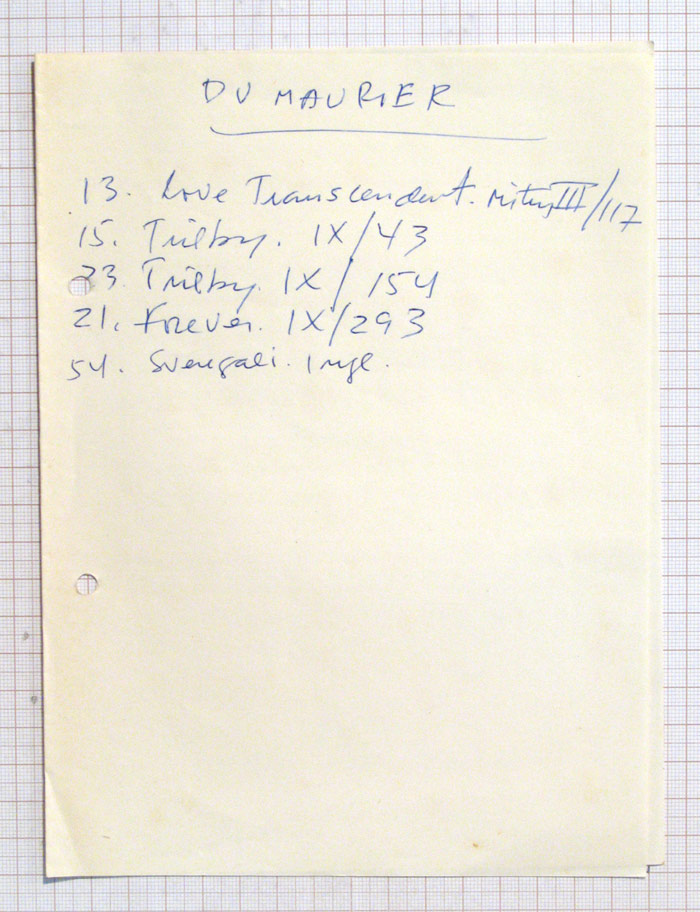 DU MAURIER
13. Love Transcendent. Mitry III/117
15. Trilby. IX/43
23. Trilby. IX/154
21. Forever. IX/293
54. Svengali. Ingl.